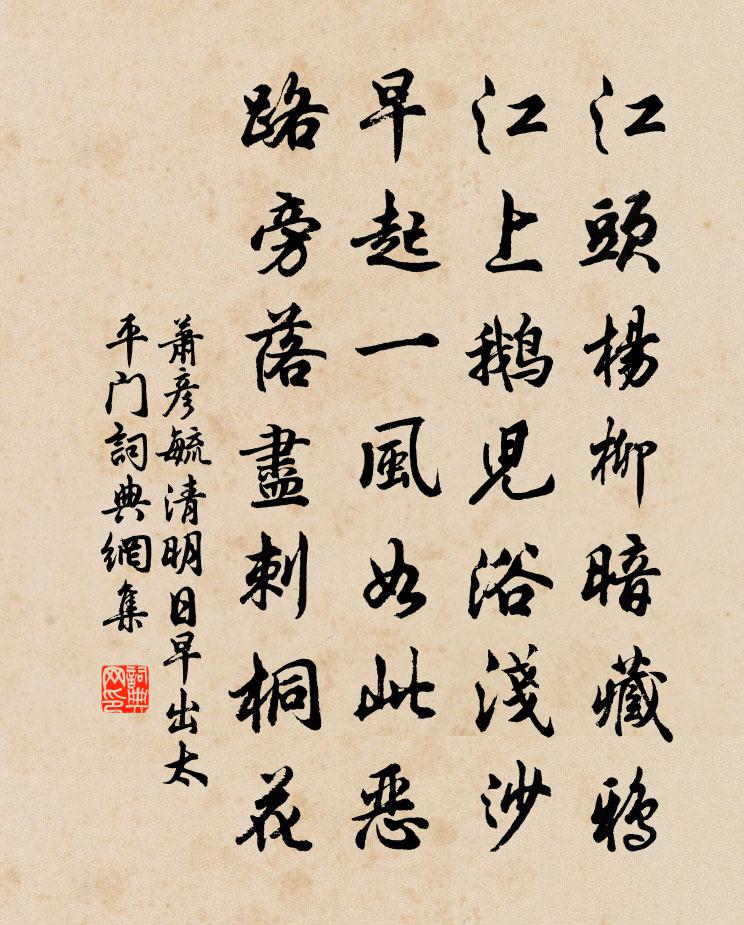 江頭楊柳暗藏鴉
江上鵝児浴淺沙
早起一風如此惡
路旁落盡刺桐花
蕭彥毓清明日早出太
平门詞典網集
詞典
网印